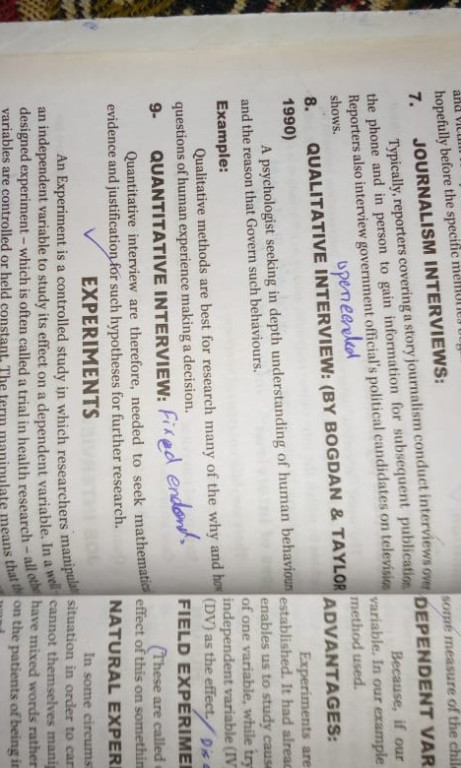 hopefully before the specific
7. JOURNALISM INTERVIEWS:
Typically, reporters covering a story journalism conduct interviews over
the phone and in person to gain information for subsequent publication
Reporters also interview government official's political candidates on television
shows.
openended
8. QUALITATIVE INTERVIEW: (BY BOGDAN & TAYLOR
1990)
A psychologist seeking in depth understanding of human behaviour
and the reason that Govern such behaviours.
Example:
Qualitative methods are best for research many of the why and how
questions of human experience making a decision.
9- QUANTITATIVE INTERVIEW: Fixed endend.
Quantitative interview are therefore, needed to seek mathematic
evidence and justification for such hypotheses for further research.
EXPERIMENTS
An Experiment is a controlled study in which researchers manipula
an independent variable to study its effect on a dependent variable. In a well
designed experiment – which is often called a trial in health research – all othe
variables are controlled or held constant. The term manipulate means that
some measure of the chil
DEPENDENT VAR
Because, if our
variable. In our example
method used.
ADVANTAGES:
Experiments are
established. It had alread
enables us to study cause
of one variable, while try
independent variable (IV
(DV) as the effect. / Dis
FIELD EXPERIME
(These are called
effect of this on somethin
NATURAL EXPER
In some circums
situation in order to car
cannot themselves mani
have mixed words rather
on the patients of being in